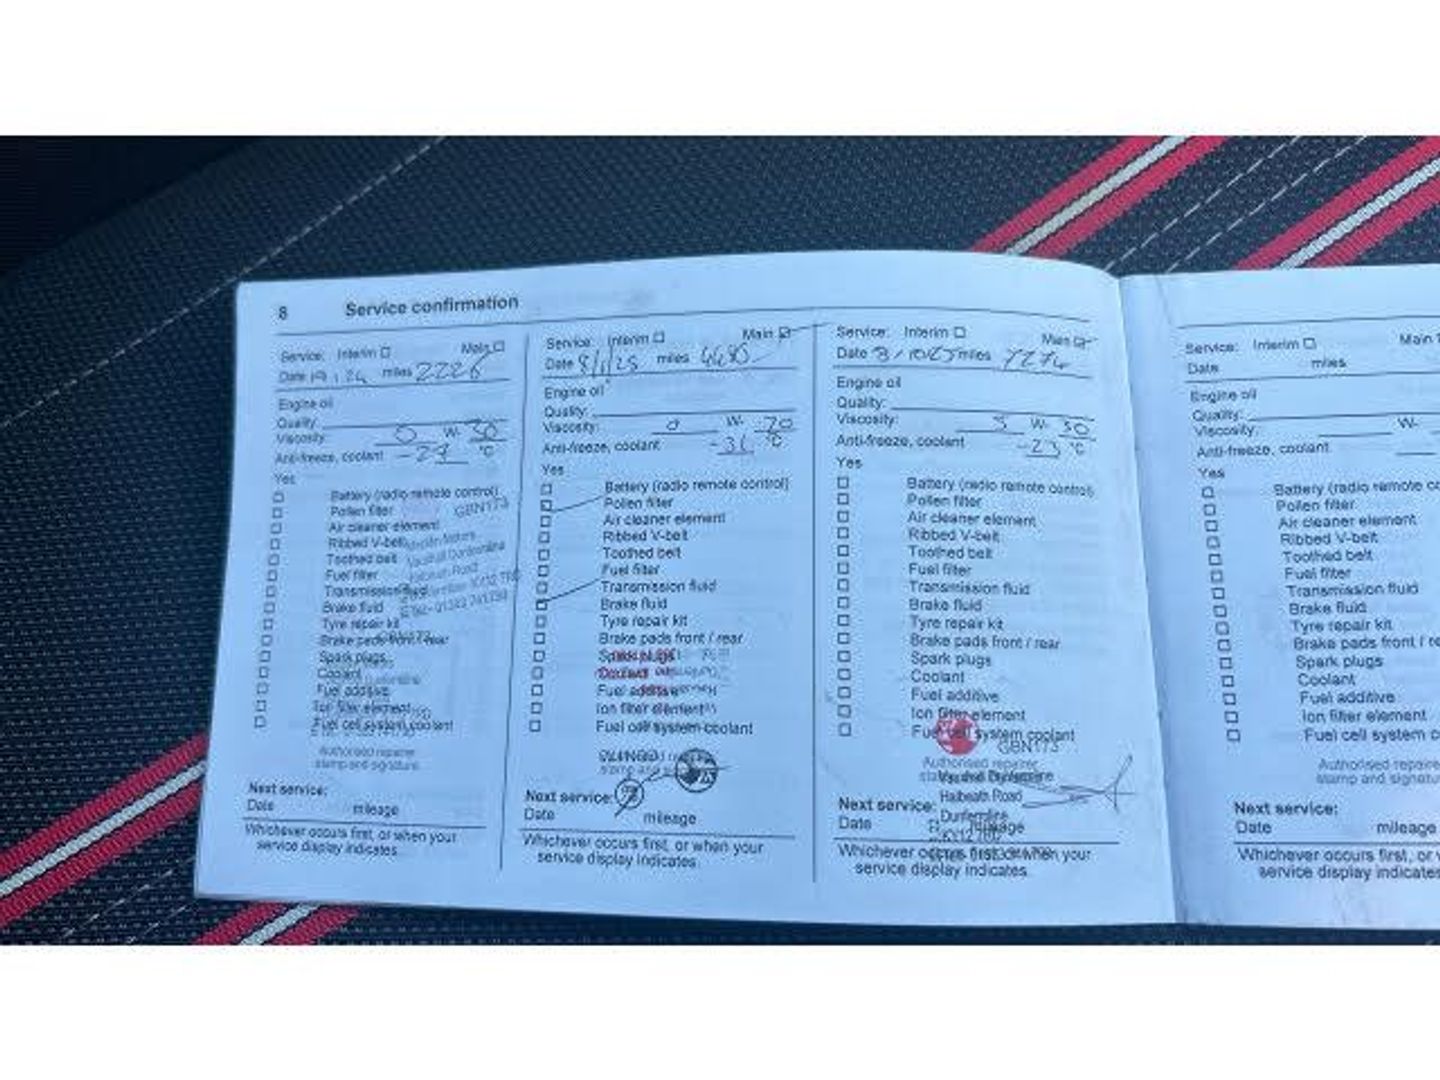 8 Service confirmation
Service: Interim Main
Date miles 2226
Engine oil
Quality
Viscosity: 0 W- 30
Anti-freeze, coolant °C
Yes
Battery (radio remote control)
Pollen filter
GBN173
Air cleaner element
Ribbed V-belt
Toothed belt
Fuel filter
Transmission fluid
Brake fluid
Tyre repair kit
Brake pads front / rear
Spark plugs
Coolant
Fuel additive
Ion filter element
Fuel cell system coolant
Authorised repairer
stamp and signature
Next service:
Date mileage
Whichever occurs first, or when your
service display indicates.
Service: Interim Main
Date 8/1/25 miles
Engine oil
Quality:
Viscosity: 0 W- 20
Anti-freeze, coolant °C
Yes
Battery (radio remote control)
Pollen filter
Air cleaner element
Ribbed V-belt
Toothed belt
Fuel filter
Transmission fluid
Brake fluid
Tyre repair kit
Brake pads front / rear
Spark plugs
Coolant
Fuel additive
Ion filter element
Fuel cell system coolant
Next service:
Date mileage
Whichever occurs first, or when your
service display indicates.
Service: Interim Main
Date miles
Engine oil
Quality:
Viscosity: 5 W- 30
Anti-freeze, coolant -23 °C
Yes
Battery (radio remote control)
Pollen filter
Air cleaner element
Ribbed V-belt
Toothed belt
Fuel filter
Transmission fluid
Brake fluid
Tyre repair kit
Brake pads front / rear
Spark plugs
Coolant
Fuel additive
Ion filter element
Fuel cell system coolant
GBN173
Authorised repairer
Halbeath Road
Next service:
Dunfermline
Date mileage
Whichever occurs first, or when your
service display indicates.
Service: Interim Main
Date miles
Engine oil
Quality:
Viscosity: W-
Anti-freeze, coolant
Yes
Battery (radio remote
Pollen filter
Air cleaner element
Ribbed V-belt
Toothed belt
Fuel filter
Transmission fluid
Brake fluid
Tyre repair kit
Brake pads front /
Spark plugs
Coolant
Fuel additive
Ion filter element
Fuel cell system
Authorised
stamp and
Next service:
Date mileage
Whichever occurs first, or
service display indicates